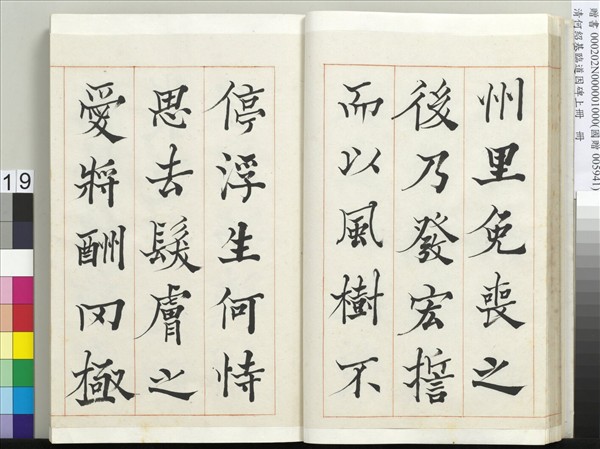 州里免喪之
後乃發宏誓
而以風樹不
停浮生何恃
思去髮膚之
愛將酬罔極
贈書 000202N000001000(國贈 005941)
清何紹基臨道因碑上冊 冊
19